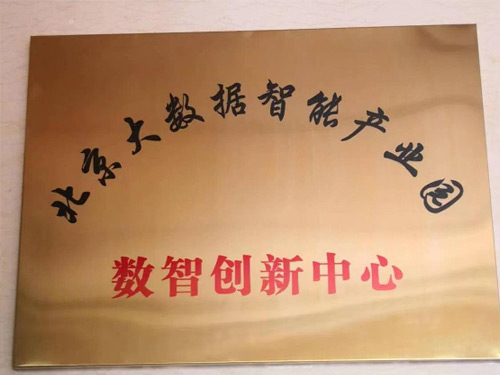 北京大数据智能产业园
数智创新中心